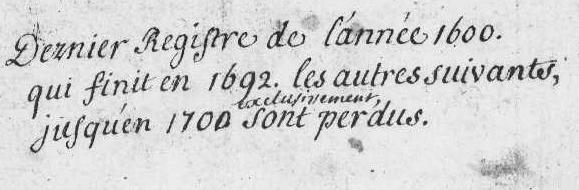 Dernier Registre de l'année 1600.
qui finit en 1692. les autres suivants,
exclusivement,
jusqu'en 1700 sont perdus.